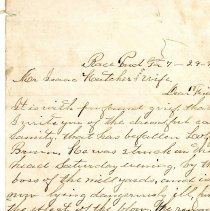 Race Pond Ga 7-29-9
Mr Isaac Hutcher & Wife,
Dear Frie
It is with profound grief that
I write you of the dreadful ca
lamity that has befallen
Brown He was struck on the
head Saturday evening by the
boss of the wood yards, and is
now lying dangerously ill, from
the effect of the blow. The